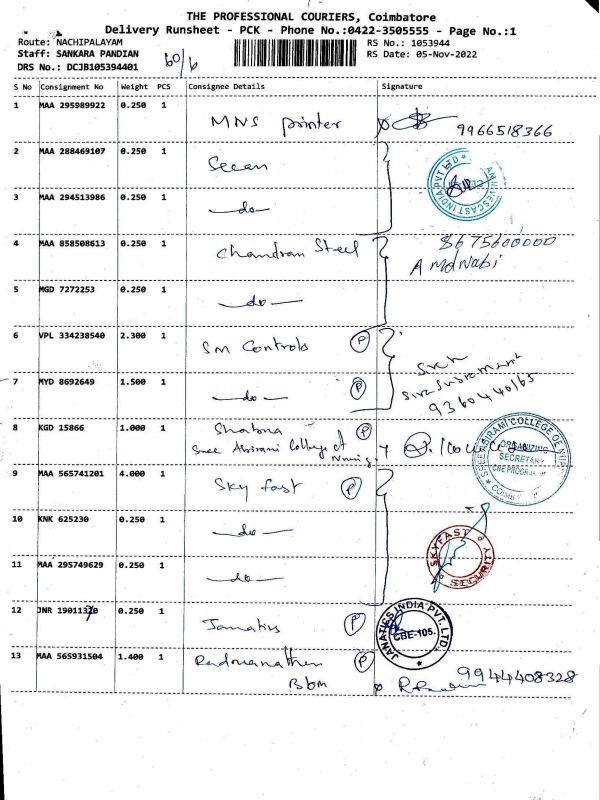 THE PROFESSIONAL COURIERS, Coimbatore
Delivery Runsheet - PCK - Phone No.:0422-3505555 - Page No.:1
Route: NACHIPALAYAM
RS No.: 1053944
Staff: SANKARA PANDIAN
RS Date: 05-Nov-2022
DRS No.: DCJB105394401
S No Consignment No Weight PCS Consignee Details Signature
1 MAA 295989922 0.250 1 MNS printer 9966518366
2 MAA 288469107 0.250 1
3 MAA 294513986 0.250 1 -do-
4 MAA 858508613 0.250 1 Chandran Steel 8675600000
5 MGD 7272253 0.250 1 -do-
6 VPL 334238540 2.300 1 Sm Controls P
7 MYD 8692649 1.500 1 -do- P 9360440165
8 KGD 15866 1.000 1 P
Sree Abirami College of
SREE ABIRAMI COLLEGE OF
ORGANIZING
SECRETARY
CNE PROGRAM
9 MAA 565741201 4.000 1 Sky fast P
10 KNK 625230 0.250 1 -do-
11 MAA 295749629 0.250 1 -do-
SKYFAST
SECURITY
12 JNR 0.250 1 Janatics P
JANATICS INDIA PVT. LTD.
CBE-105.
13 MAA 565931504 1.400 1 P 9944408328